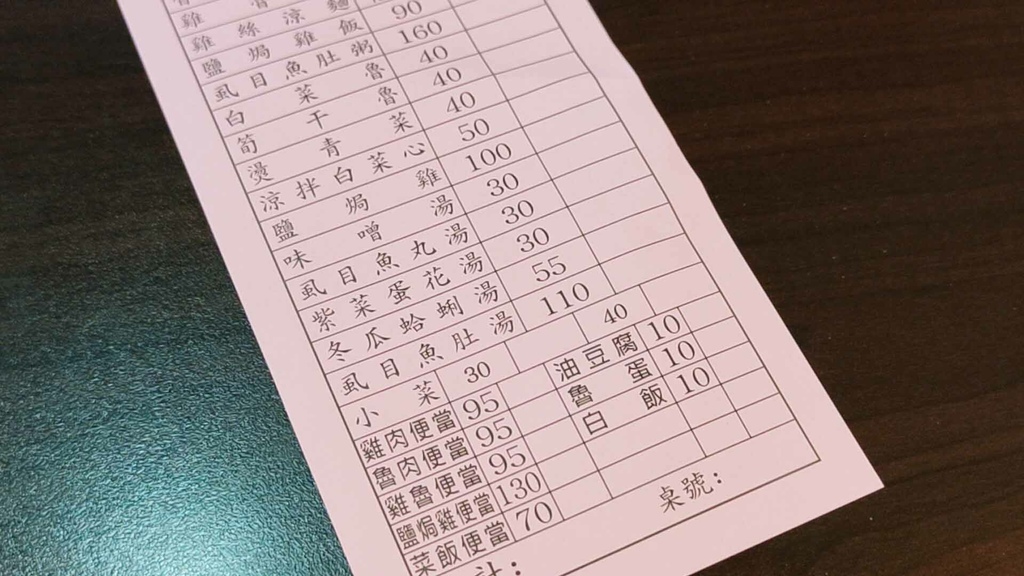 雞絲涼麵
鹽焗雞飯 90
虱目魚肚粥 160
白菜魯 40
筍干魯 40
燙青菜 40
涼拌白菜心 50
鹽焗雞 100
味噌湯 30
虱目魚丸湯 30
紫菜蛋花湯 30
冬瓜蛤蜊湯 55
虱目魚肚湯 110
小菜 30 40
雞肉便當 95 油豆腐 10
魯肉便當 95 魯蛋 10
雞魯便當 95 白飯 10
鹽焗雞便當 130
菜飯便當 70
計： 桌號：